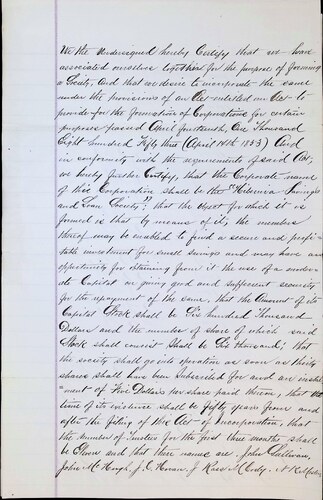 We the Undersigned hereby Certify that we have
associated ourselves together for the purpose of forming
a Society; And that we desire to incorporate the same
under the provisions of an Act entitled an Act to
provide for the formation of Corporations for certain
purposes passed April fourteenth, One Thousand
Eight hundred Fifty three (April 14th 1853) And
in conformity with the requirements of said Act,
we hereby further Certify, that the Corporate name
of this Corporation shall be the "Hibernia Savings
and Loan Society"; that the object for which it is
formed is that by means of it, the members
thereof may be enabled to find a secure and profi-
table investment for small savings and may have an
opportunity for obtaining from it the use of a moder-
ate Capital on giving good and sufficient security
for the repayment of the same, that the Amount of its
Capital Stock shall be Six hundred Thousand
Dollars and the number of share of which said
Stock shall consist Shall be Six thousand; that
the society shall go into operation as soon as thirty
shares shall have been Subscribed for and an instal
ment of Five Dollars per share paid thereon, that the
time of its existence shall be fifty years from and
after the filing of this Act of incorporation, that
the number of Trustees for the first three months shall
be Eleven and that their names are. John Sullivan,
John McHugh, J. C.